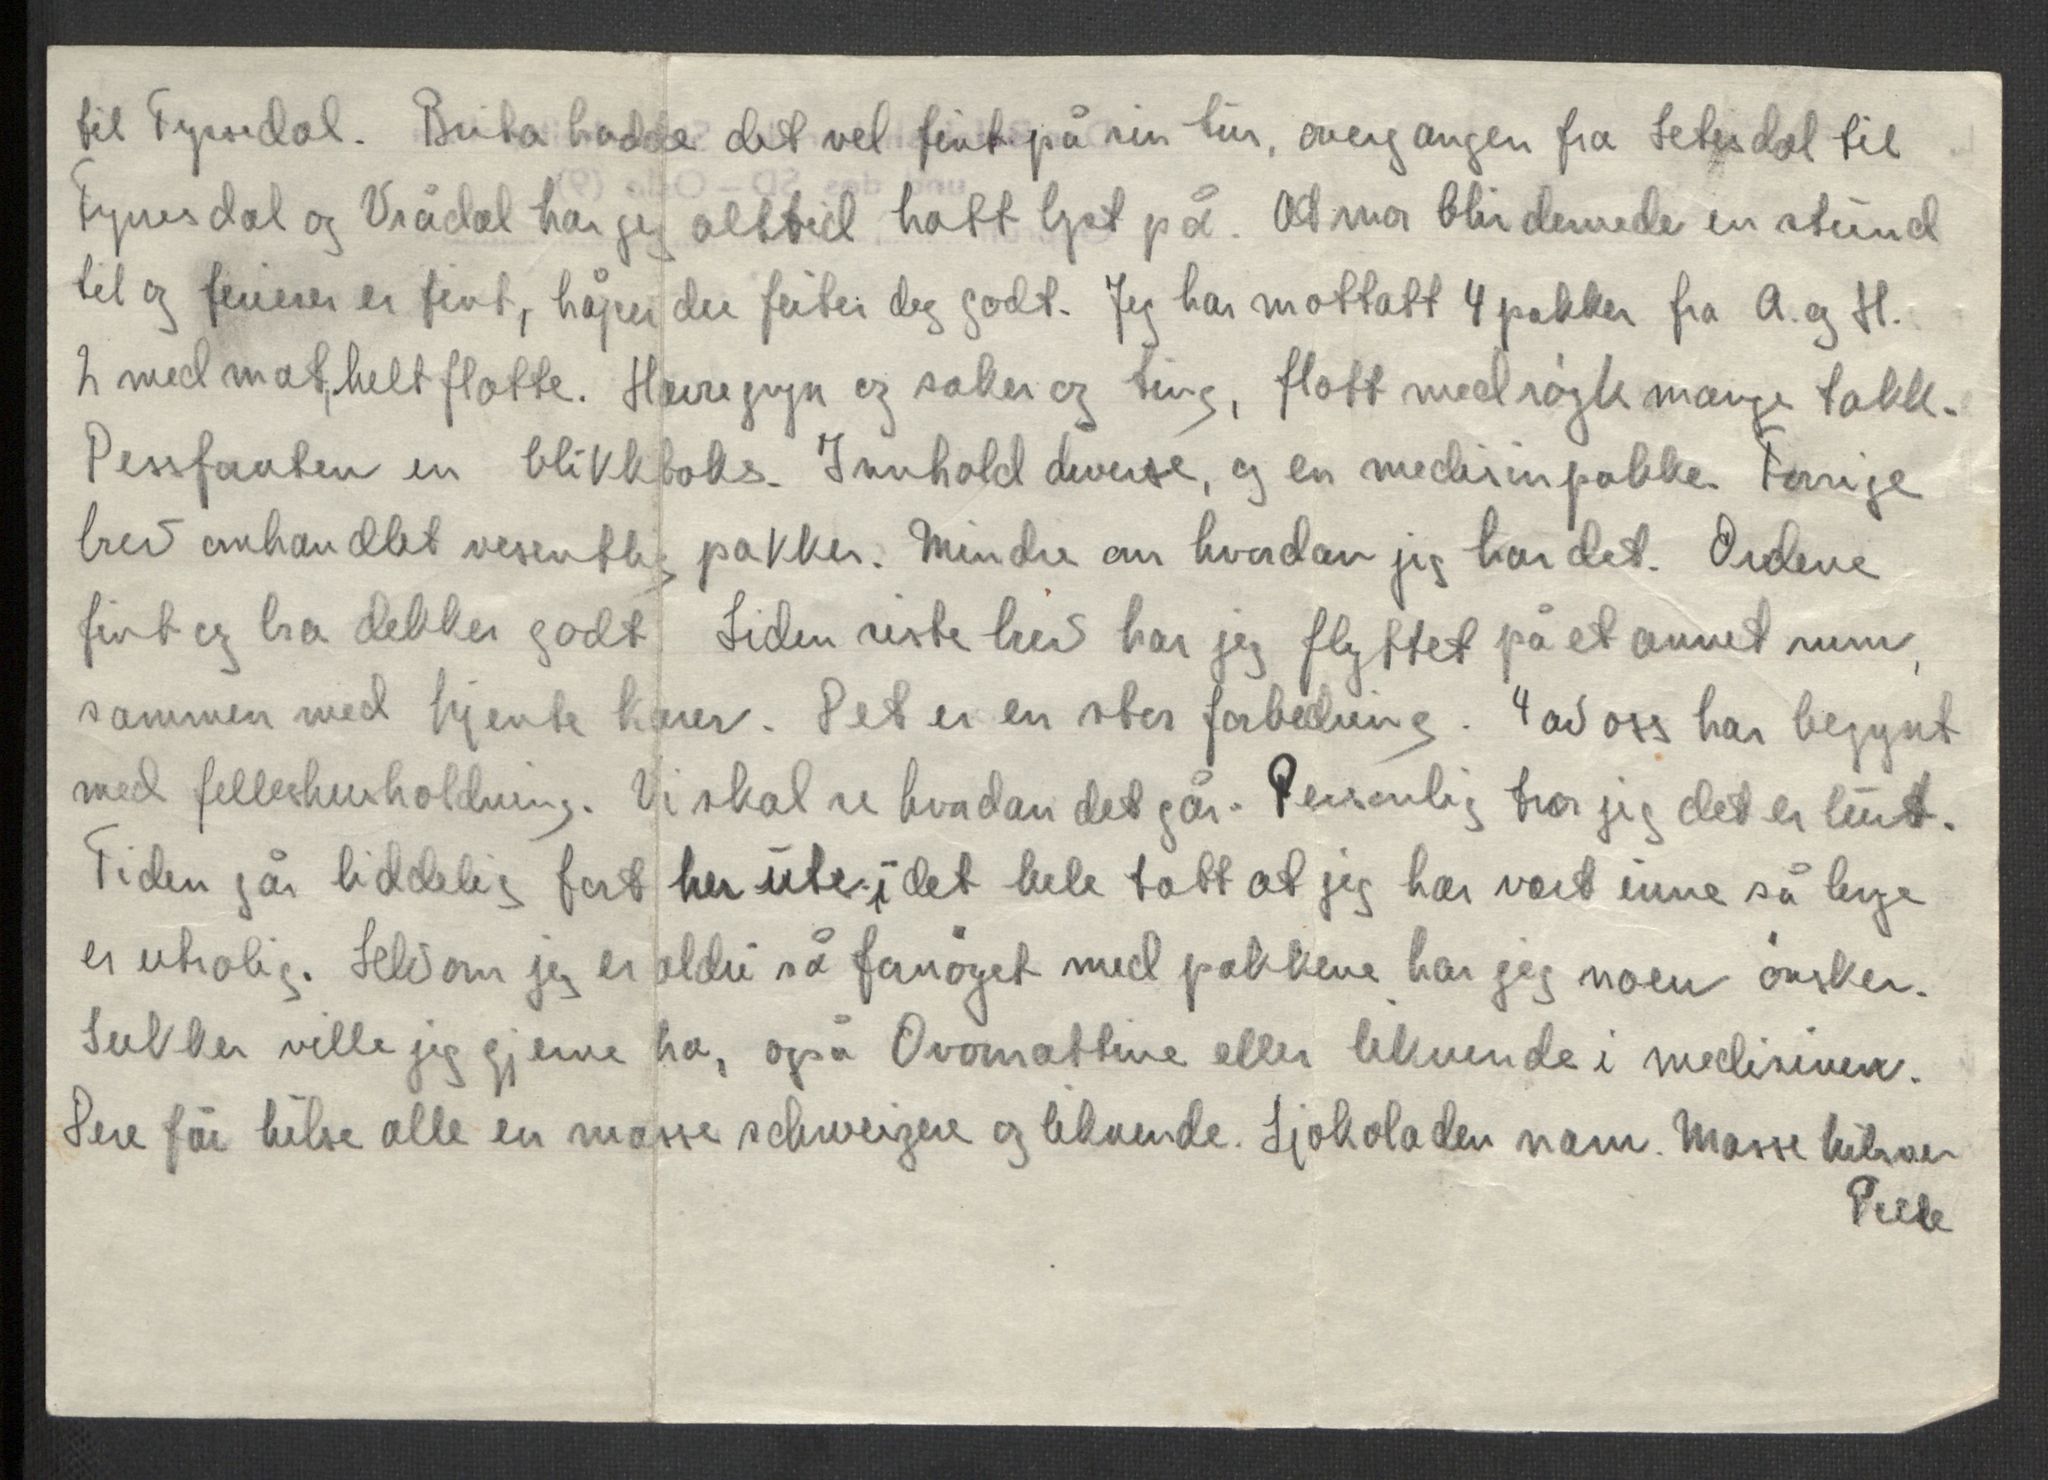 til Tyssedal. Brita hadde det vel fint på sin tur, overgangen fra Setesdal til
Fyresdal og Vrådal har jeg alltid hatt lyst på. At mor blir dernede en stund
til og ferierer er fint, håper du feiter deg godt. Jeg har mottatt 4 pakker fra A. og H.
2 med mat, helt flotte. Havregryn og saker og ting, flott med røyk mange takk.
en blikkboks. Innhold diverse, og en medisinpakke. Forrige
brev omhandlet vesentlig pakker. Mindre om hvordan jeg har det. Ordene
fint og bra dekker godt. Siden siste brev har jeg flyttet på et annet rum,
sammen med kjente karer. Det er en stor forbedring. 4 av oss har begynt
med felleshusholdning. Vi skal se hvordan det går. Personlig tror jeg det er lurt.
Tiden går liddelig fort her ute i det hele tatt at jeg har vært inne så lenge
er utrolig. Selv om jeg er aldri så fornöyet med pakkene har jeg noen önsker.
Sukker ville jeg gjerne ha, også Ovomaltine eller liknende i medisinen.
Dere får hilse alle en masse schweizere og liknende. Sjokoladen nam. Masse hilsner
Pelle
und des SD – Oslo (9)